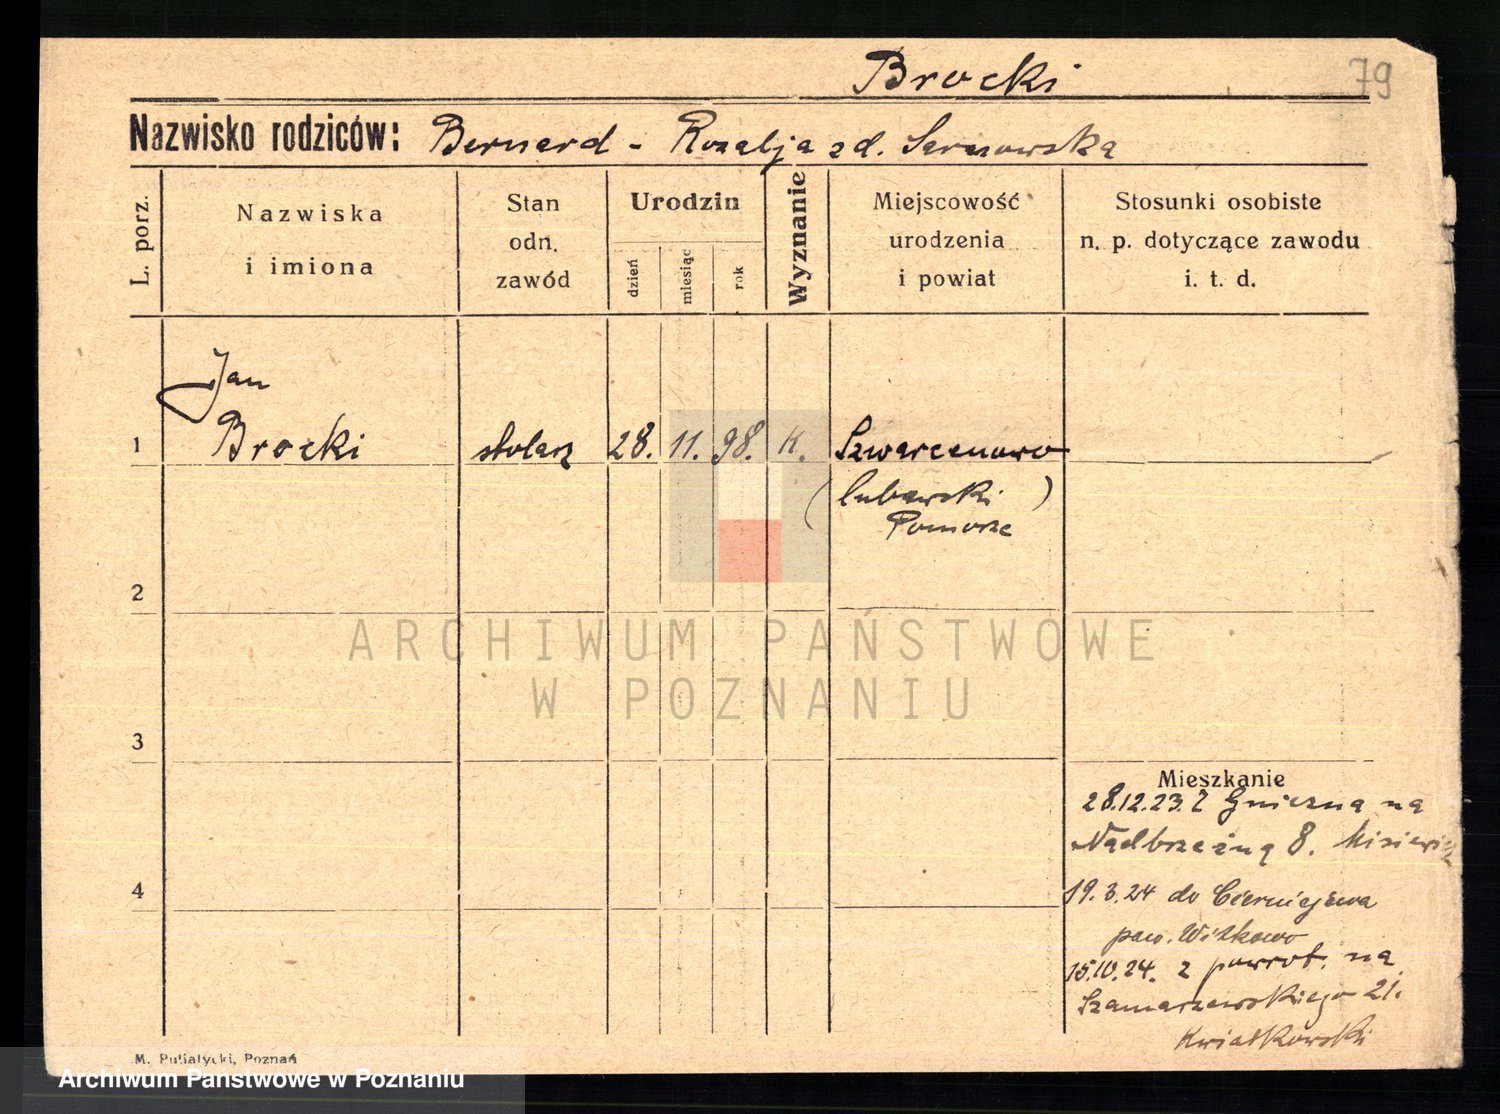 Brocki
79
Nazwisko rodziców: Bernard - Rozalja zd. Sarnowska
L. porz.
Nazwiska i imiona
Stan odn. zawód
Urodzin
dzień
miesiąc
rok
Wyznanie
Miejscowość urodzenia i powiat
Stosunki osobiste n. p. dotyczące zawodu i. t. d.
Jan
1 Brocki stolarz 28. 11. 98. K. Szwarcenowo
(lubawski)
Pomorze
2
ARCHIWUM PAŃSTWOWE
W POZNANIU
3
Mieszkanie
28.12.23. Z Gniezna na
Nadbrzeżną 8.
4
19.3.24 do Cierniejewa
pow. Witkowo
15.10.24. z powrot. na
Szamarzewskiego 21.
Kwiatkowski
M. Putiatycki, Poznań
Archiwum Państwowe w Poznaniu